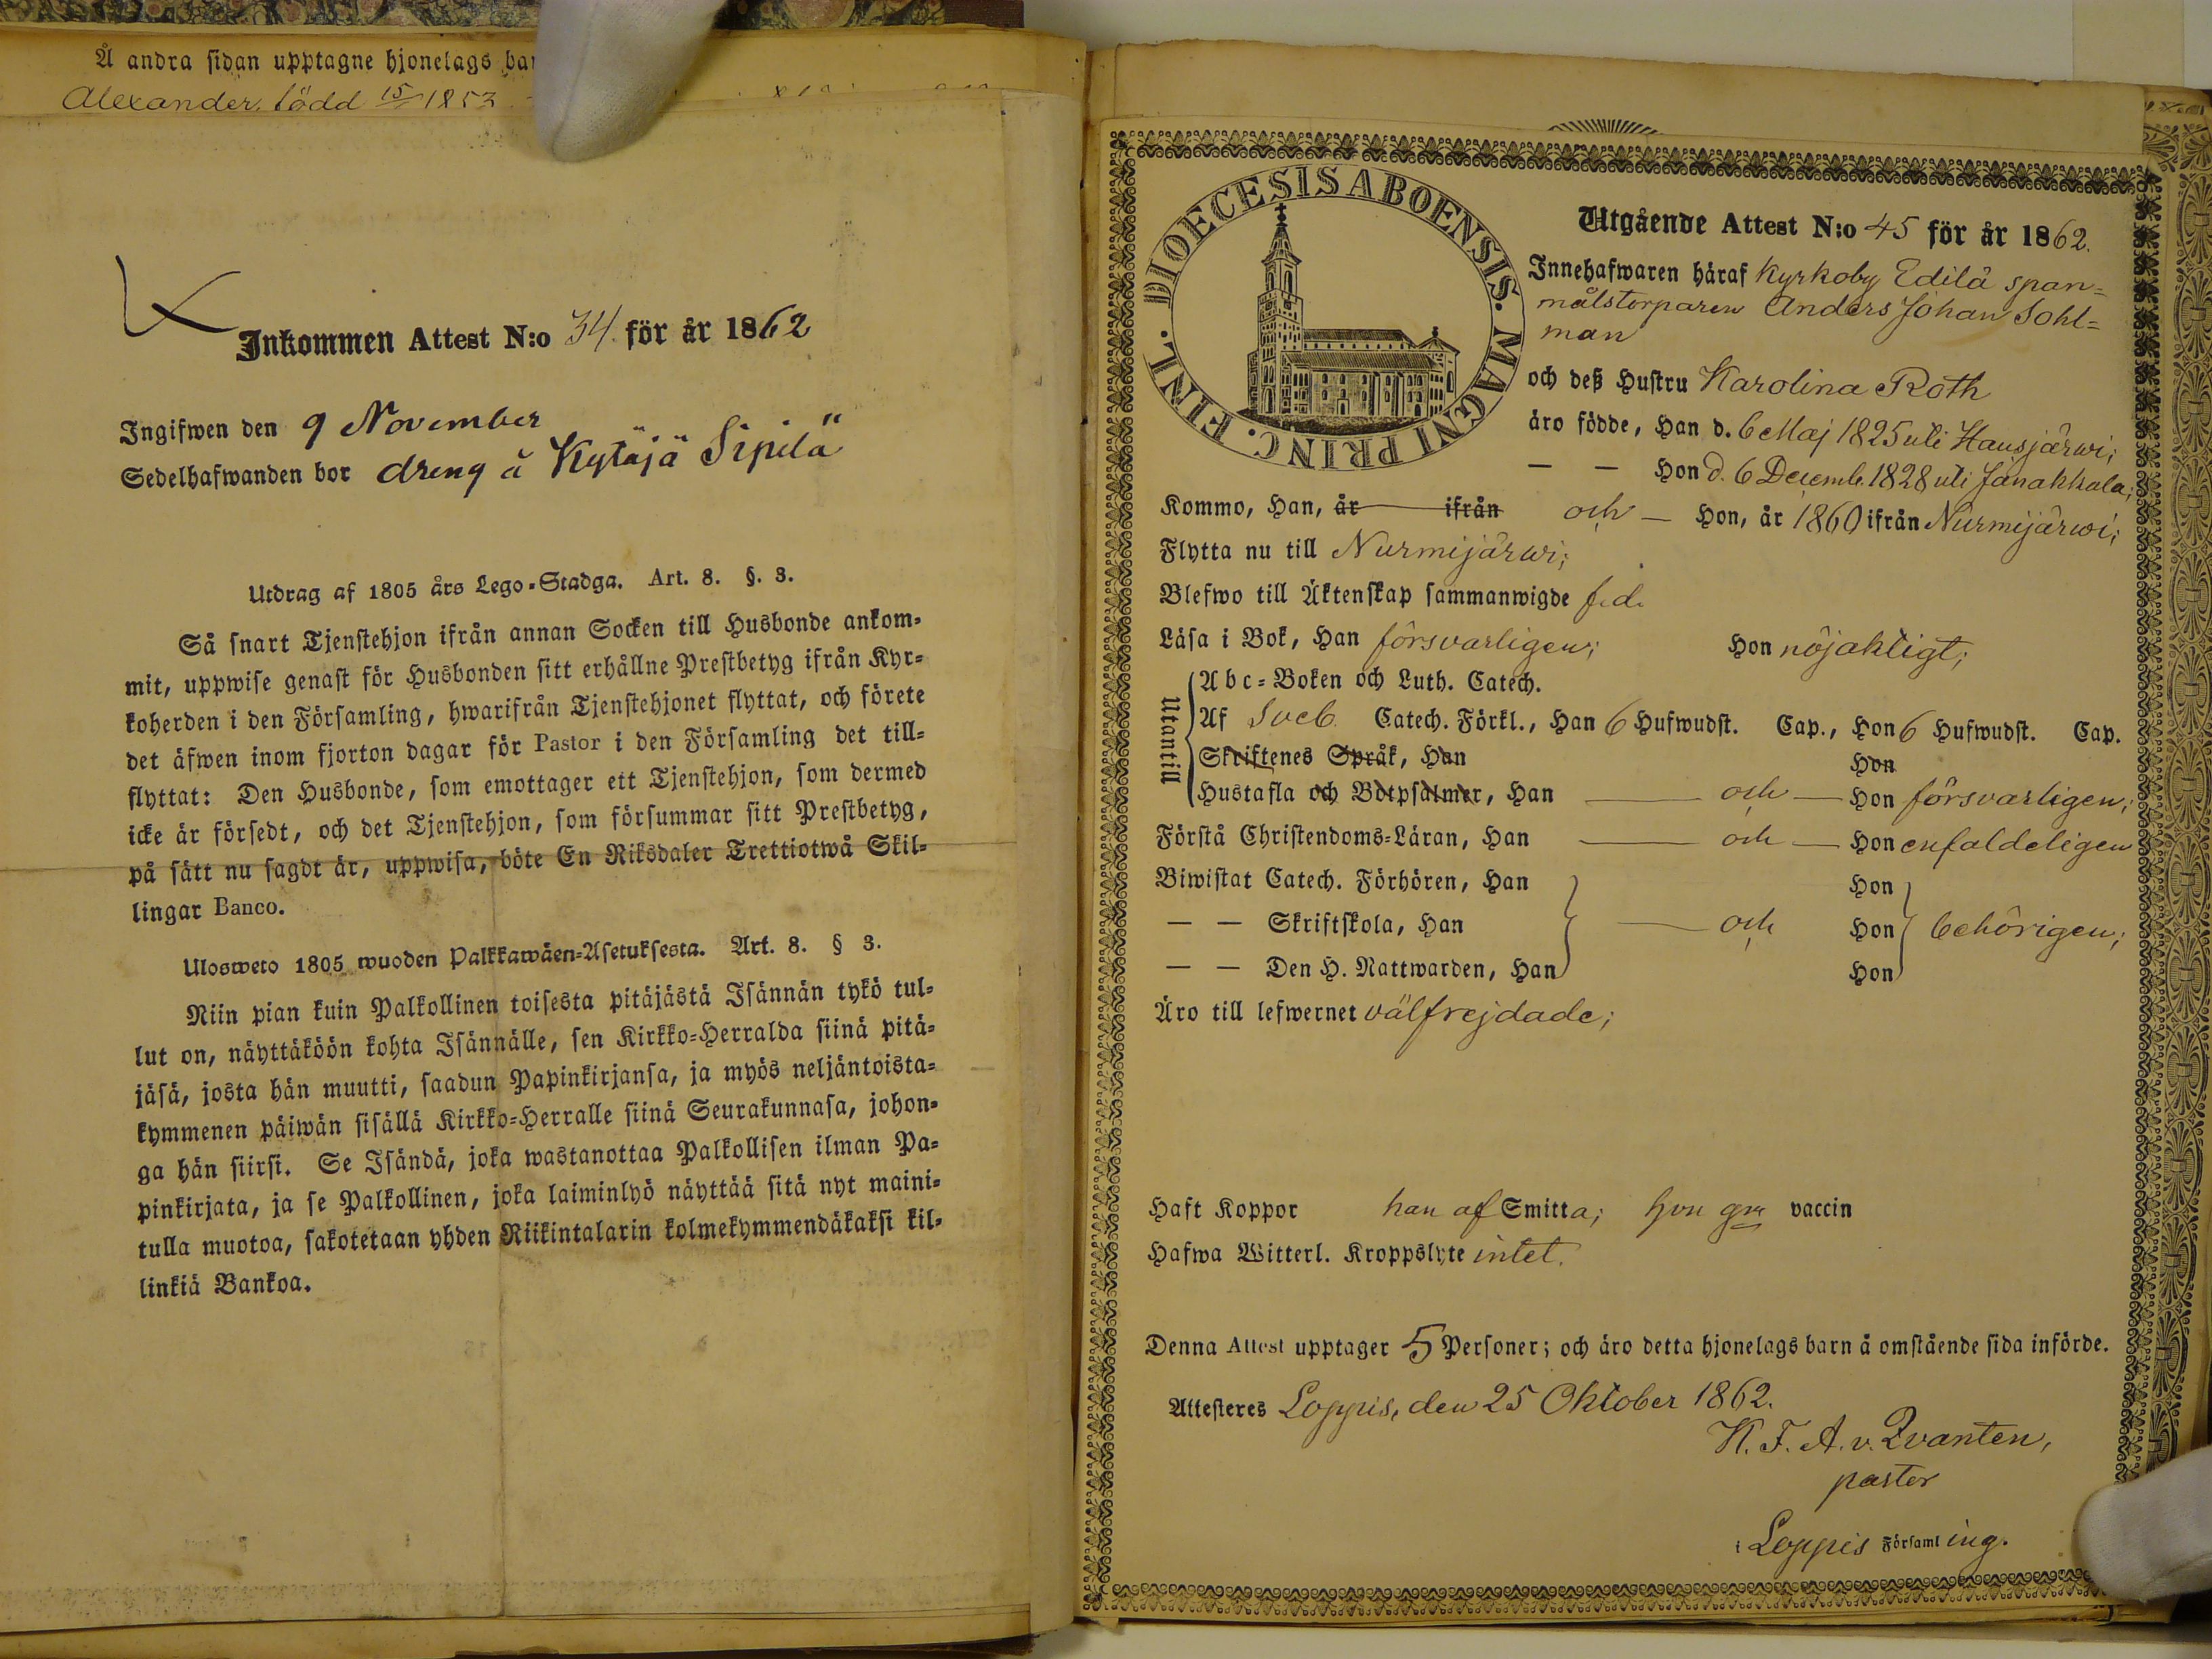 Å andra sidan upptagne hjonelags
Alexander. född 15/ 1853
Inkommen Attest N:o 34. för år 1862
Ingifwen den 9 November
Sedelhafwanden bor dreng å Kytäjä Sipilä
Utdrag af 1805 års Lego-Stadga. Art. 8. §. 3.
Så snart Tjenstehjon ifrån annan Socken till Husbonde ankom-
mit, uppwise genast för Husbonden sitt erhållne Prestbetyg ifrån Kyr-
koherden i den Församling, hwarifrån Tjenstehjonet flyttat, och förete
det äfwen inom fjorton dagar för Pastor i den Församling det till-
flyttat: Den Husbonde, som emottager ett Tjenstehjon, som dermed
icke är försedt, och det Tjenstehjon, som försummar sitt Prestbetyg,
på sätt nu sagdt är, uppwisa, böte En Riksdaler Trettiotwå Skil-
lingar Banco.
Ulosweto 1805 wuoden Palkkawäen-Asetuksesta. Art. 8. § 3.
Niin pian kuin Palkollinen toisesta pitäjästä Isännän tykö tul-
lut on, näyttäköön kohta Isännälle, sen Kirkko-Herralda siinä pitä-
jäsä, josta hän muutti, saadun Papinkirjansa, ja myös neljäntoista-
kymmenen päiwän sisällä Kirkko-Herralle siinä Seurakunnasa, johon-
ga hän siirsi. Se Isändä, joka wastanottaa Palkollisen ilman Pa-
pinkirjata, ja se Palkollinen, joka laiminlyö näyttää sitä nyt maini-
tulla muotoa, sakotetaan yhden Riikintalarin kolmekymmendäkaksi kil-
linkiä Bankoa.
DIOECESIS ABOENSIS. MAGNI PRINC. FINL.
Utgående Attest N:o 45 för år 1862.
Innehafwaren häraf Kyrkoby Edilä span-
målstorparen Anders Johan Sohl-
man
och deß Hustru Karolina Roth
äro födde, Han d. 6 Maj 1825 uti Hausjärwi;
— — Hon d. 6 Decemb. 1828 uti Janakkala;
Kommo, Han, år ifrån och — Hon, år 1860 ifrån Nurmijärwi;
Flytta nu till Nurmijärwi;
Blefwo till Äktenskap sammanwigde
Läsa i Bok, Han försvarligen; Hon nöjaktigt;
Utantill
Abc-Boken och Luth. Catech.
Af Sveb. Catech. Förkl., Han 6 Hufwudst. Cap., Hon 6 Hufwudst. Cap.
Skriftenes Språk, Han Hon
Hustafla och Botpsalmer, Han — och — Hon försvarligen;
Förstå Christendoms-Läran, Han — och — Hon enfaldeligen
Biwistat Catech. Förhören, Han Hon
— — Skriftskola, Han — och Hon behörigen;
— — Den H. Nattwarden, Han Hon
Äro till lefwernet välfrejdade;
Haft Koppor han af Smitta; hon gm vaccin
Hafwa Witterl. Kroppslyte intet.
Denna Attest upptager 5 Personer; och äro detta hjonelags barn å omstående sida införde.
Attesteres Loppis, den 25 Oktober 1862.
K. F. A. v. Qvanten,
pastor
i Loppis Församling.